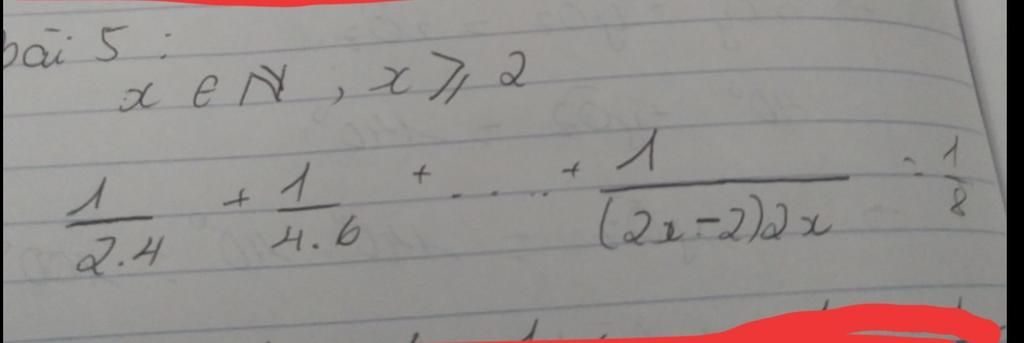 bài 5 :
x ∈ N , x ⩾ 2
1/2.4 + 1/4.6 + ..... + 1/(2x-2)2x = 1/8